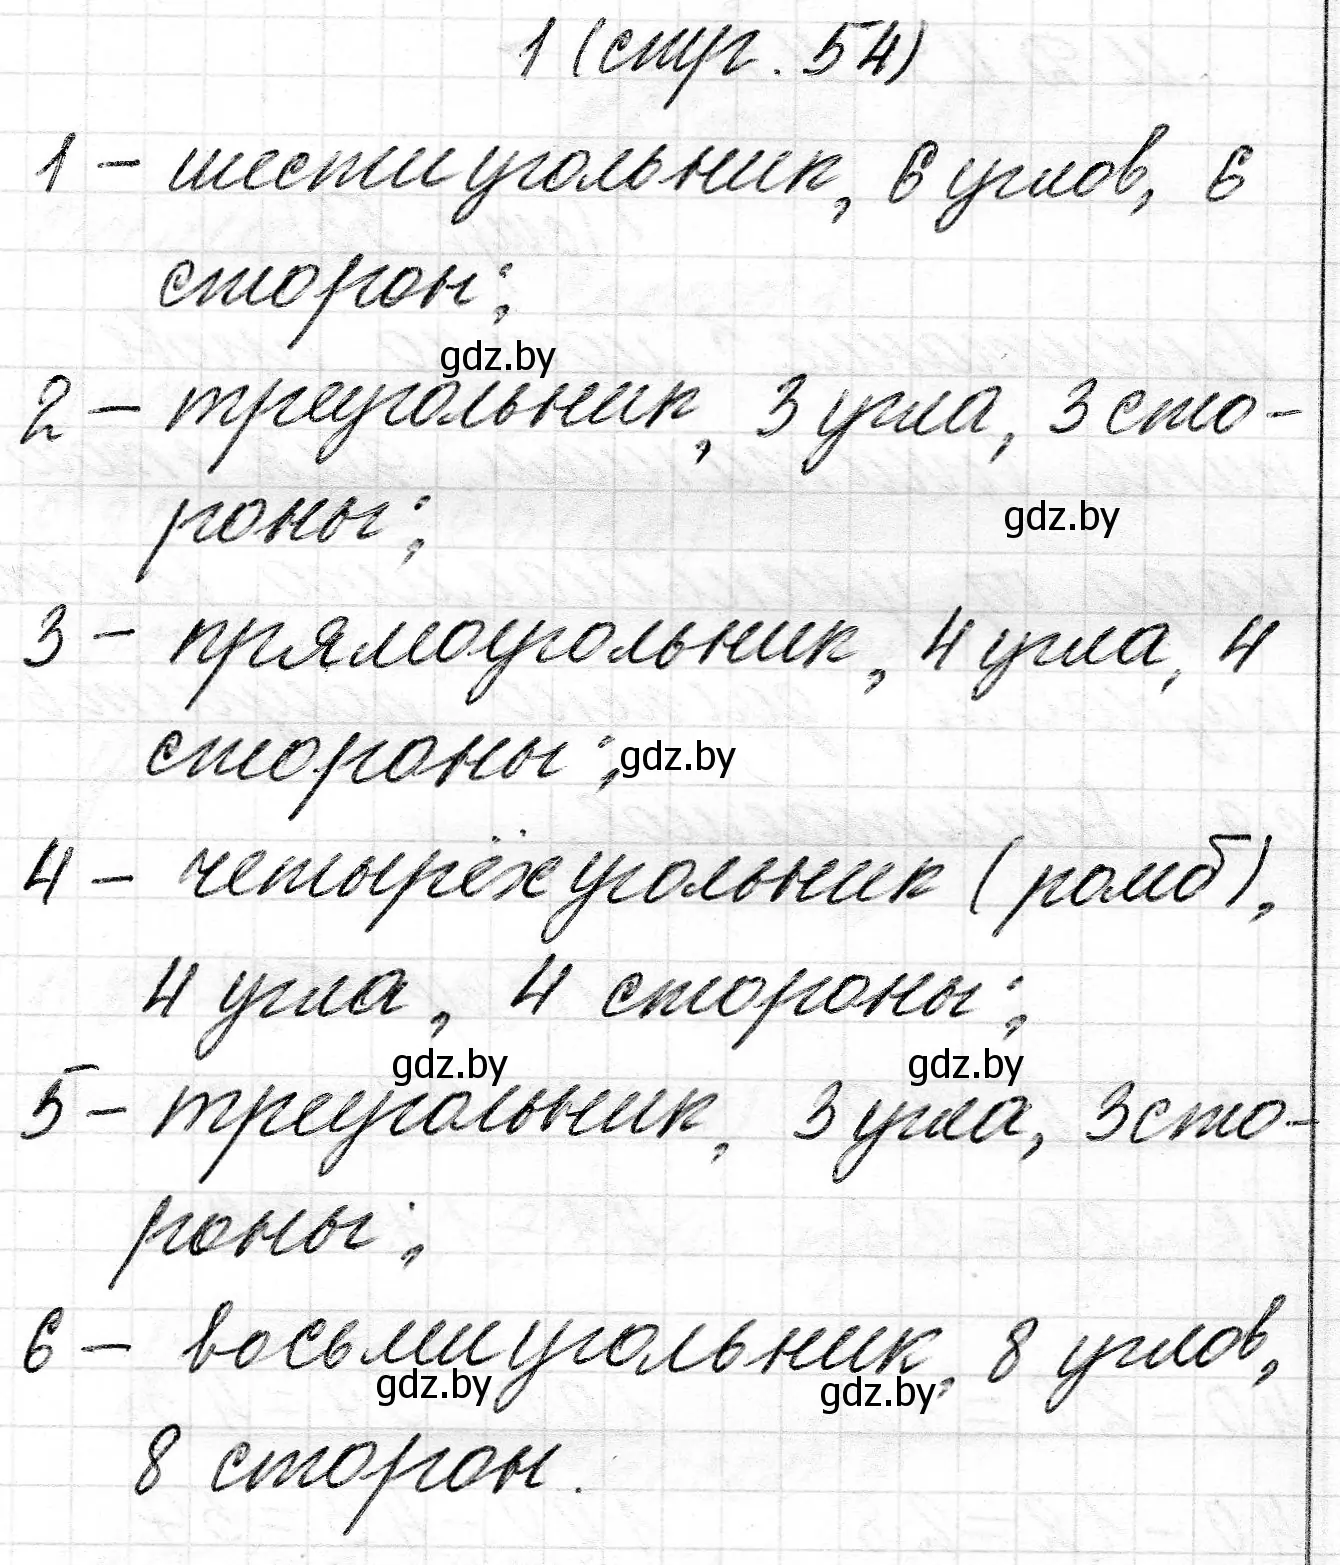 1 (стр. 54)
1 – шестиугольник, 6 углов, 6
сторон;
gdz.by
2 – треугольник, 3 угла, 3 сто-
роны;
gdz.by
3 – прямоугольник, 4 угла, 4
стороны;
gdz.by
4 – четырёхугольник (ромб),
4 угла, 4 стороны;
gdz.by gdz.by
5 – треугольник, 3 угла, 3 сто-
роны;
6 – восьмиугольник, 8 углов,
gdz.by gdz.by
8 сторон.